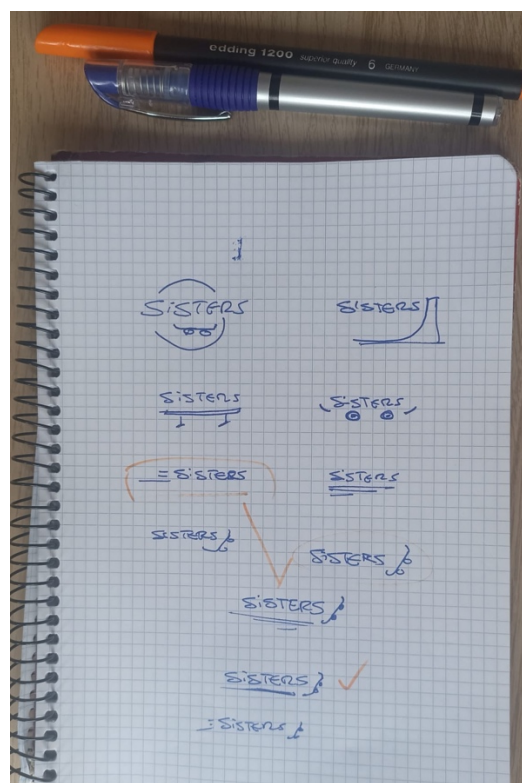 edding 1200 superior quality 6 GERMANY
SiSTERS
SiSTERS
SiSTERS
SiSTERS
SiSTERS
SiSTERS
SiSTERS
SiSTERS
SiSTERS
SiSTERS
SiSTERS